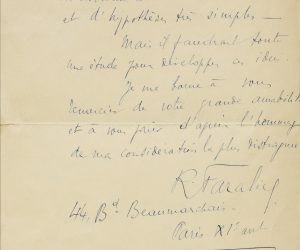 et d'hypothèses très simples —
Mais il faudrait toute
une étude pour développer ces idées.
Je me borne à vous
remercier de votre grande amabilité
et à vous prier d'agréer l'hommage
de ma considération la plus distinguée
44, Bd Beaumarchais
Paris XIe arrt